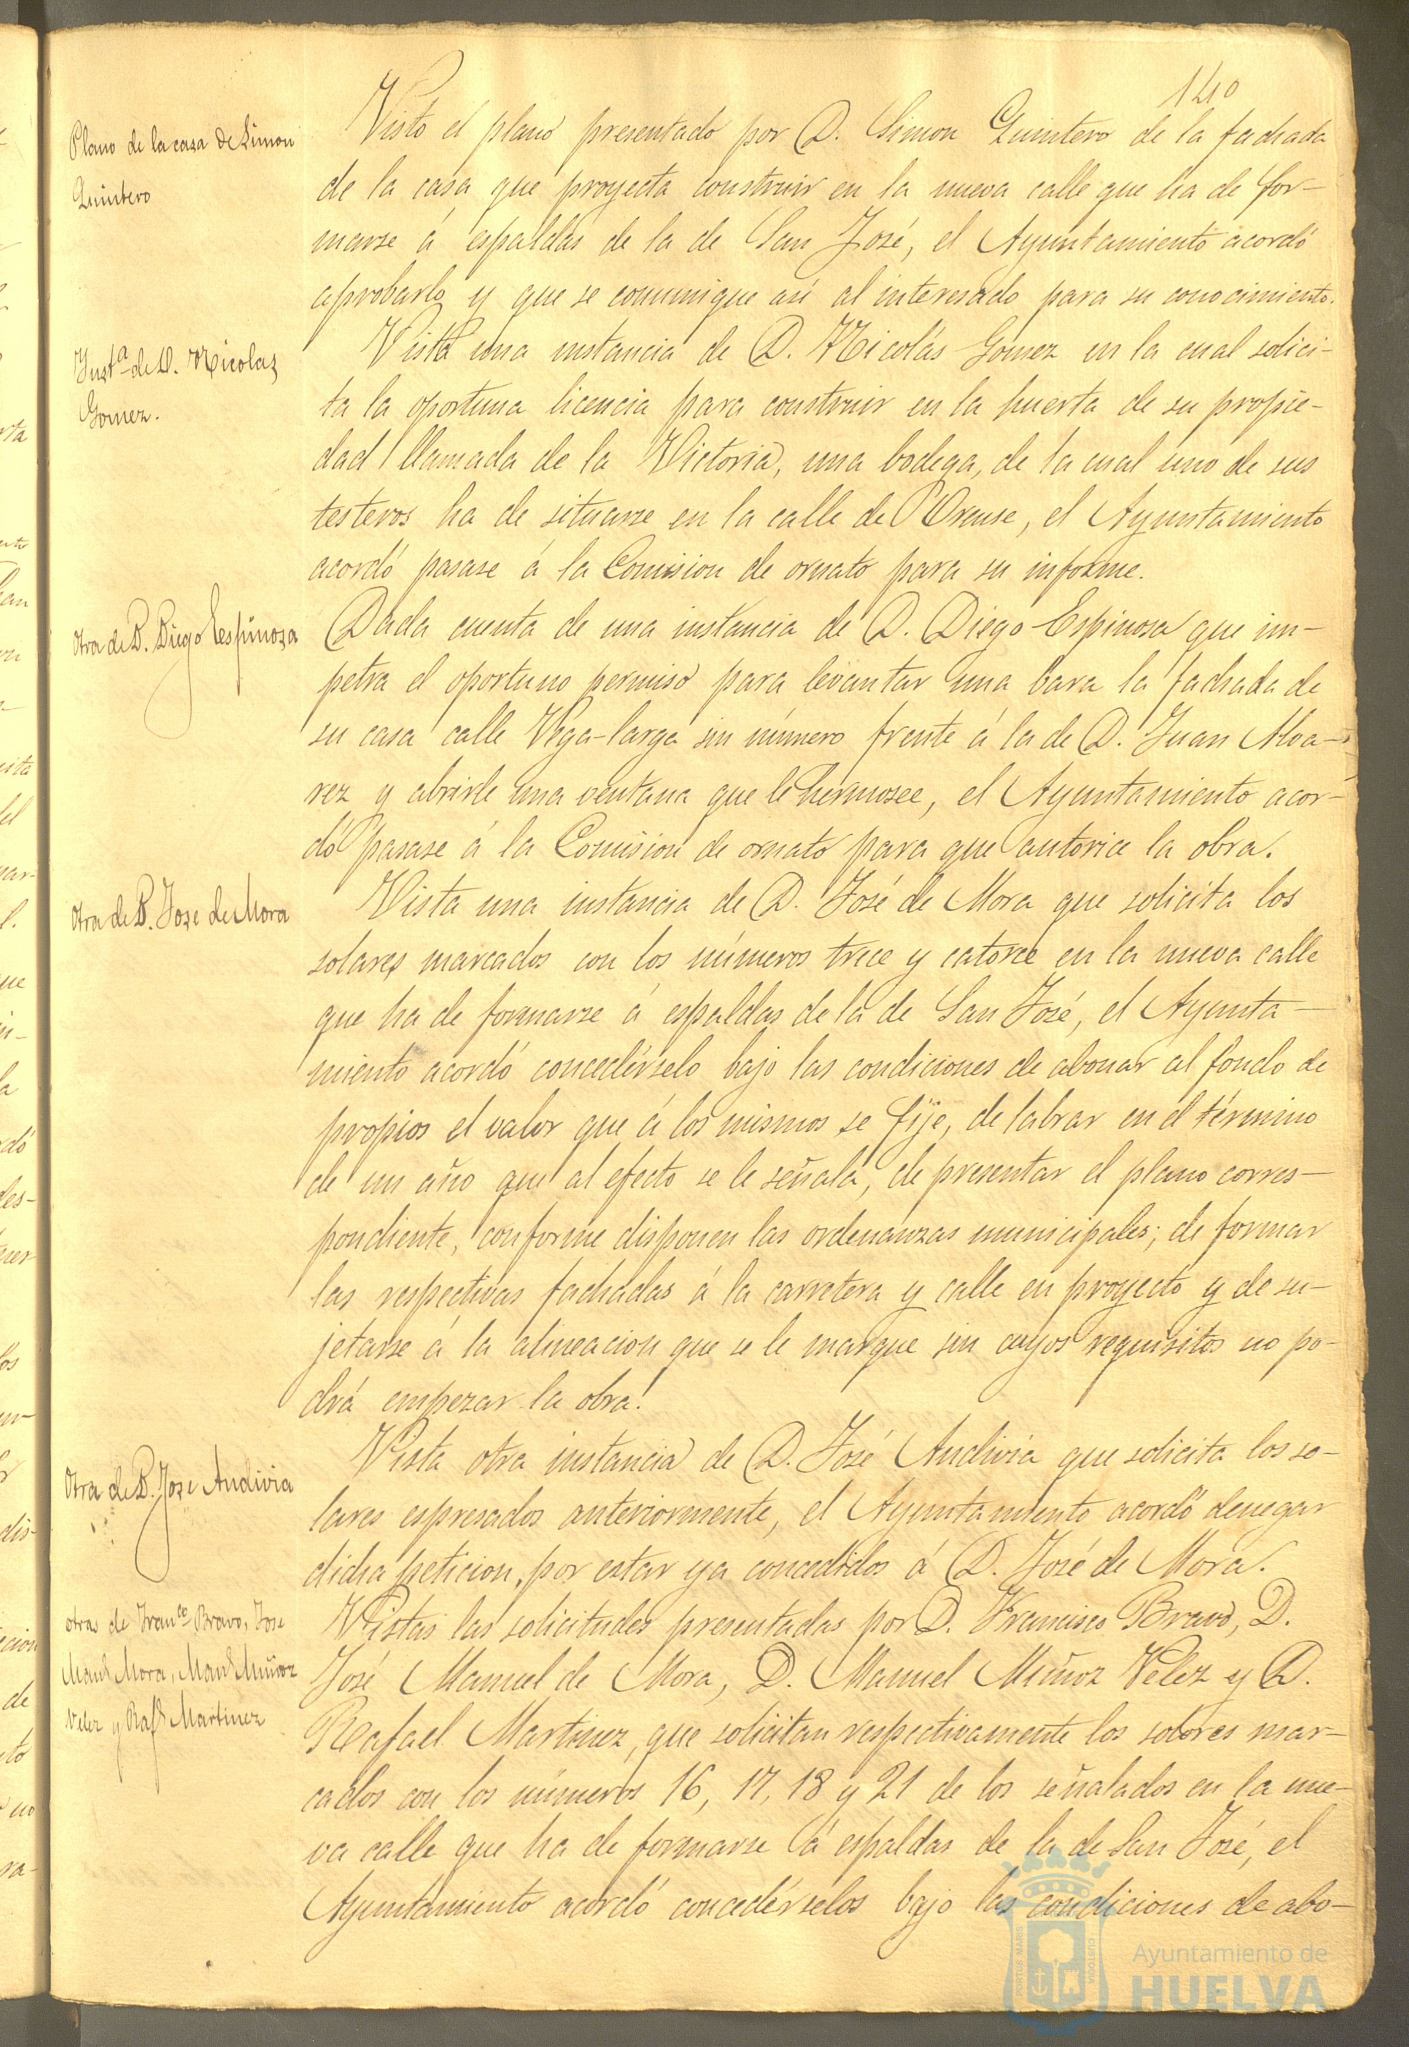 140
Plano de la casa de Simon
Quintero
Visto el plano presentado por D. Simon Quintero de la fachada
de la casa que proyecta construir en la nueva calle que ha de for-
marse á espaldas de la de San José, el Ayuntamiento acordó
aprobarlo y que se comunique asi al interesado para su conocimiento.
Inst.ª de D. Nicolas
Gomez.
Vista una instancia de D. Nicolás Gomez en la cual solici-
ta la oportuna licencia para construir en la huerta de su propie-
dad llamada de la Victoria, una bodega, de la cual uno de sus
testeros ha de situarse en la calle de Orense, el Ayuntamiento
acordó pasase á la Comision de ornato para su informe.
Otra de D. Diego Espinosa
Dada cuenta de una instancia de D. Diego Espinosa que im-
petra el oportuno permiso para levantar una bara la fachada de
su casa calle Vega-larga sin número frente á la de D. Juan Alva-
rez y abrirle una ventana que le hermosee, el Ayuntamiento acor-
dó pasase á la Comision de ornato para que autorice la obra.
Otra de D. Jose de Mora
Vista una instancia de D. José de Mora que solicita los
solares marcados con los números trece y catorce en la nueva calle
que ha de formarse á espaldas de la de San José, el Ayunta-
miento acordó concedérselo bajo las condiciones de abonar al fondo de
propios el valor que á los mismos se fije, de labrar en el término
de un año que al efecto se le señala, de presentar el plano corres-
pondiente, conforme disponen las ordenanzas municipales; de formar
las respectivas fachadas á la carretera y calle en proyecto y de su-
jetarse á la alineacion que se le marque sin cuyos requisitos no po-
drá empezar la obra.
Otra de D. Jose Andivia
Vista otra instancia de D. José Andivia que solicita los so-
lares espresados anteriormente, el Ayuntamiento acordó denegar
dicha peticion, por estar ya concedidos á D. José de Mora.
otras de Fran.co Bravo, Jose
Man.l Mora, Man.l Muñoz
Velez y Raf.l Martinez
Vistas las solicitudes presentadas por D. Francisco Bravo, D.
José Manuel de Mora, D. Manuel Muñoz Velez y D.
Rafael Martinez, que solicitan respectivamente los solares mar-
cados con los números 16, 17, 18 y 21 de los señalados en la nue-
va calle que ha de formarse á espaldas de la de San José, el
Ayuntamiento acordó concedérselos bajo las condiciones de abo-
Ayuntamiento de
HUELVA